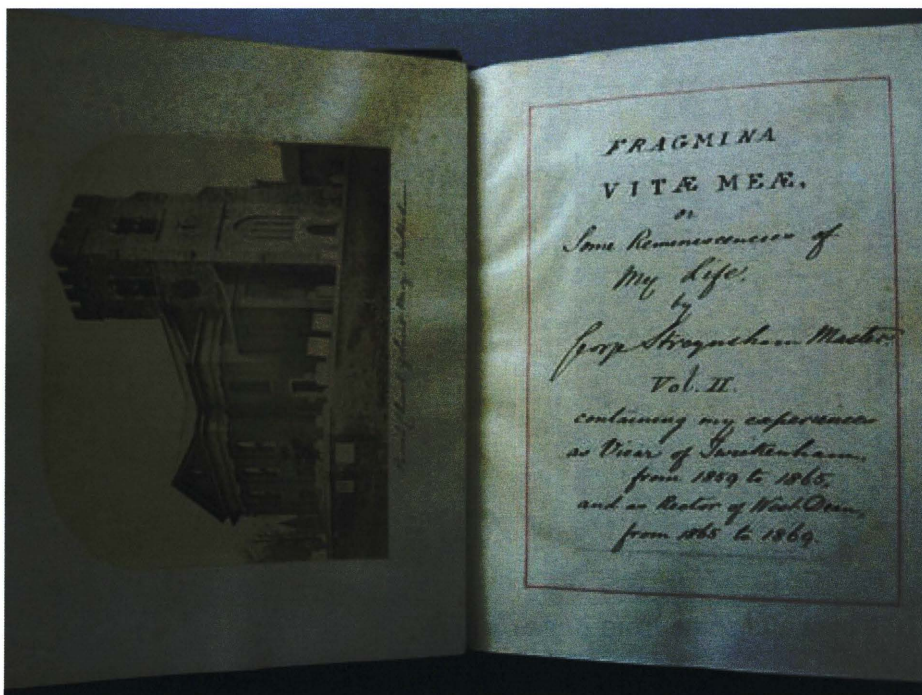 Parish Church of St Mary Twickenham
FRAGMINA
VITÆ MEÆ.
or
Some Reminiscences of
My Life.
by
Streynsham Master
Vol. II.
containing my experiences
as Vicar of Twickenham,
from 1859 to 1865,
and as Rector of West Dean,
from 1865 to 1869.